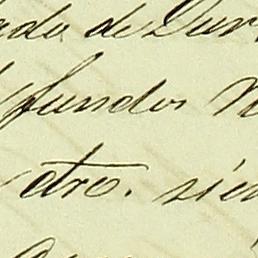 ado de Dur
fundos N
otro. sien